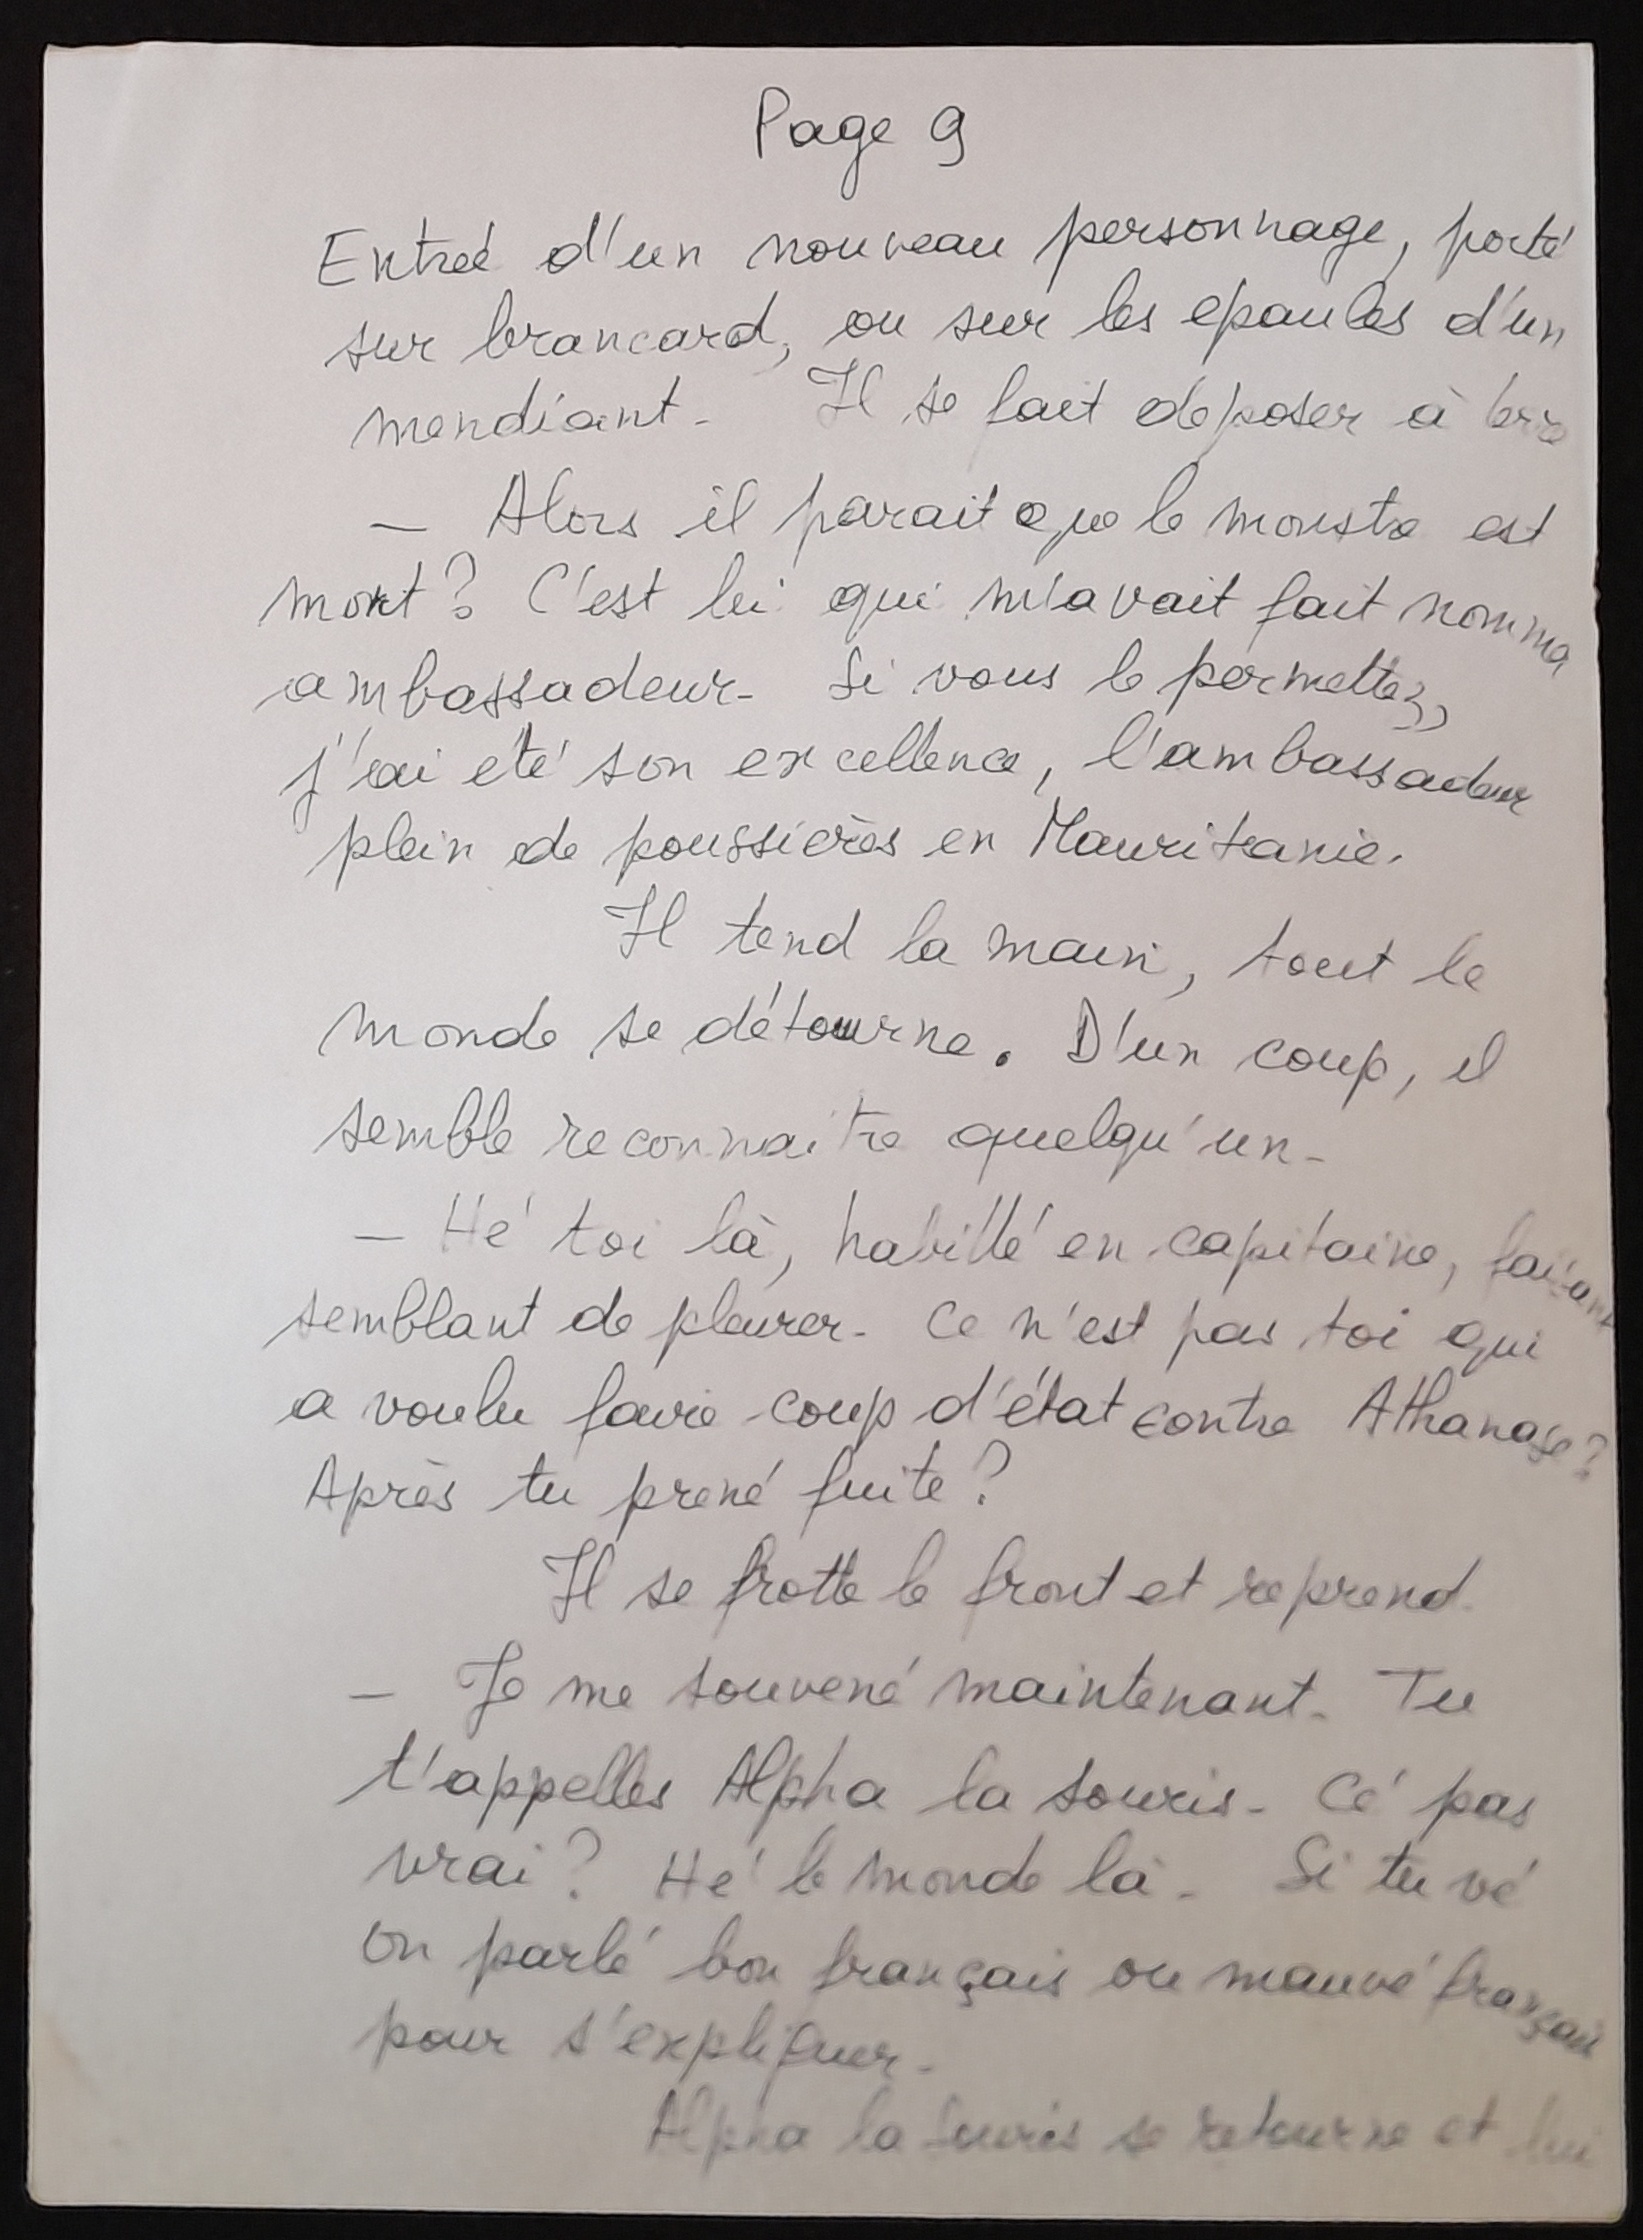 Page 9
Entrée d'un nouveau personnage, porté
sur brancard, ou sur les epaules d'un
mendiant. Il se fait deposer à terre
– Alors il parait que le monstre est
mort? C'est lui qui m'avait fait nommé
ambassadeur. Si vous le permettez,
j'ai été son excellence, l'ambassadeur
plein de poussières en Mauritanie.
Il tend la main, tout le
monde se détourne. D'un coup, il
semble reconnaitre quelqu'un.
– Hé toi là, habillé en capitaine, faisant
semblant de pleurer. Ce n'est pas toi qui
a voulu faire coup d'état contre Athanase?
Après tu prené fuite?
Il se frotte le front et reprend.
– Je me souvené maintenant. Tu
t'appelles Alpha la souris. Cé pas
vrai? Hé le monde là. Si tu vé
on parlé bon français ou mauvé français
pour s'expliquer.
Alpha la souris se retourne et lui